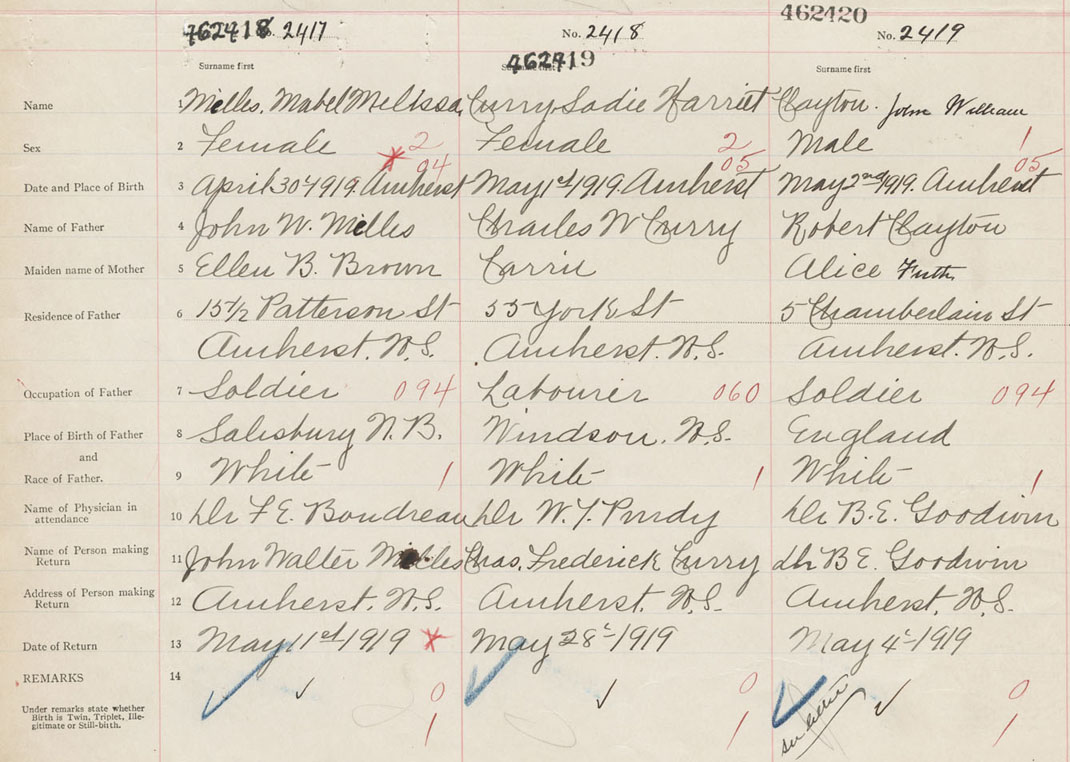 462418 No. 2417 No. 2418 462420 No. 2419
Surname first 462419 Surname first
Name 1 Melles, Mabel Melissa Curry Sadie Harriet Clayton. John William
Sex 2 Female 2 Female 2 Male 1
04 05 05
Date and Place of Birth 3 April 30-1919. Amherst May 1st 1919. Amherst May 2nd 1919. Amherst
Name of Father 4 John W. Melles Charles W Curry Robert Clayton
Maiden name of Mother 5 Ellen B. Brown Carrie Alice
Residence of Father 6 15½ Patterson St 55 York St 5 Chamberlain St
Amherst. N.S. Amherst. N.S. Amherst. N.S.
Occupation of Father 7 Soldier 094 Labourer 060 Soldier 094
Place of Birth of Father 8 Salisbury N.B. Windsor. N.S. England
and
Race of Father. 9 White 1 White 1 White 1
Name of Physician in
attendance 10 Dr F E. Boudreau Dr W. T. Purdy Dr B. E. Goodwin
Name of Person making
Return 11 John Walter Chas. Frederick Curry Dr B E. Goodwin
Address of Person making
Return 12 Amherst. N.S. Amherst. N.S. Amherst. N.S.
Date of Return 13 May 11th 1919 May 28th 1919 May 4th 1919
REMARKS 14 0 0 0
Under remarks state whether
Birth is Twin, Triplet, Ille-
gitimate or Still-birth. 1 1 see letter 1